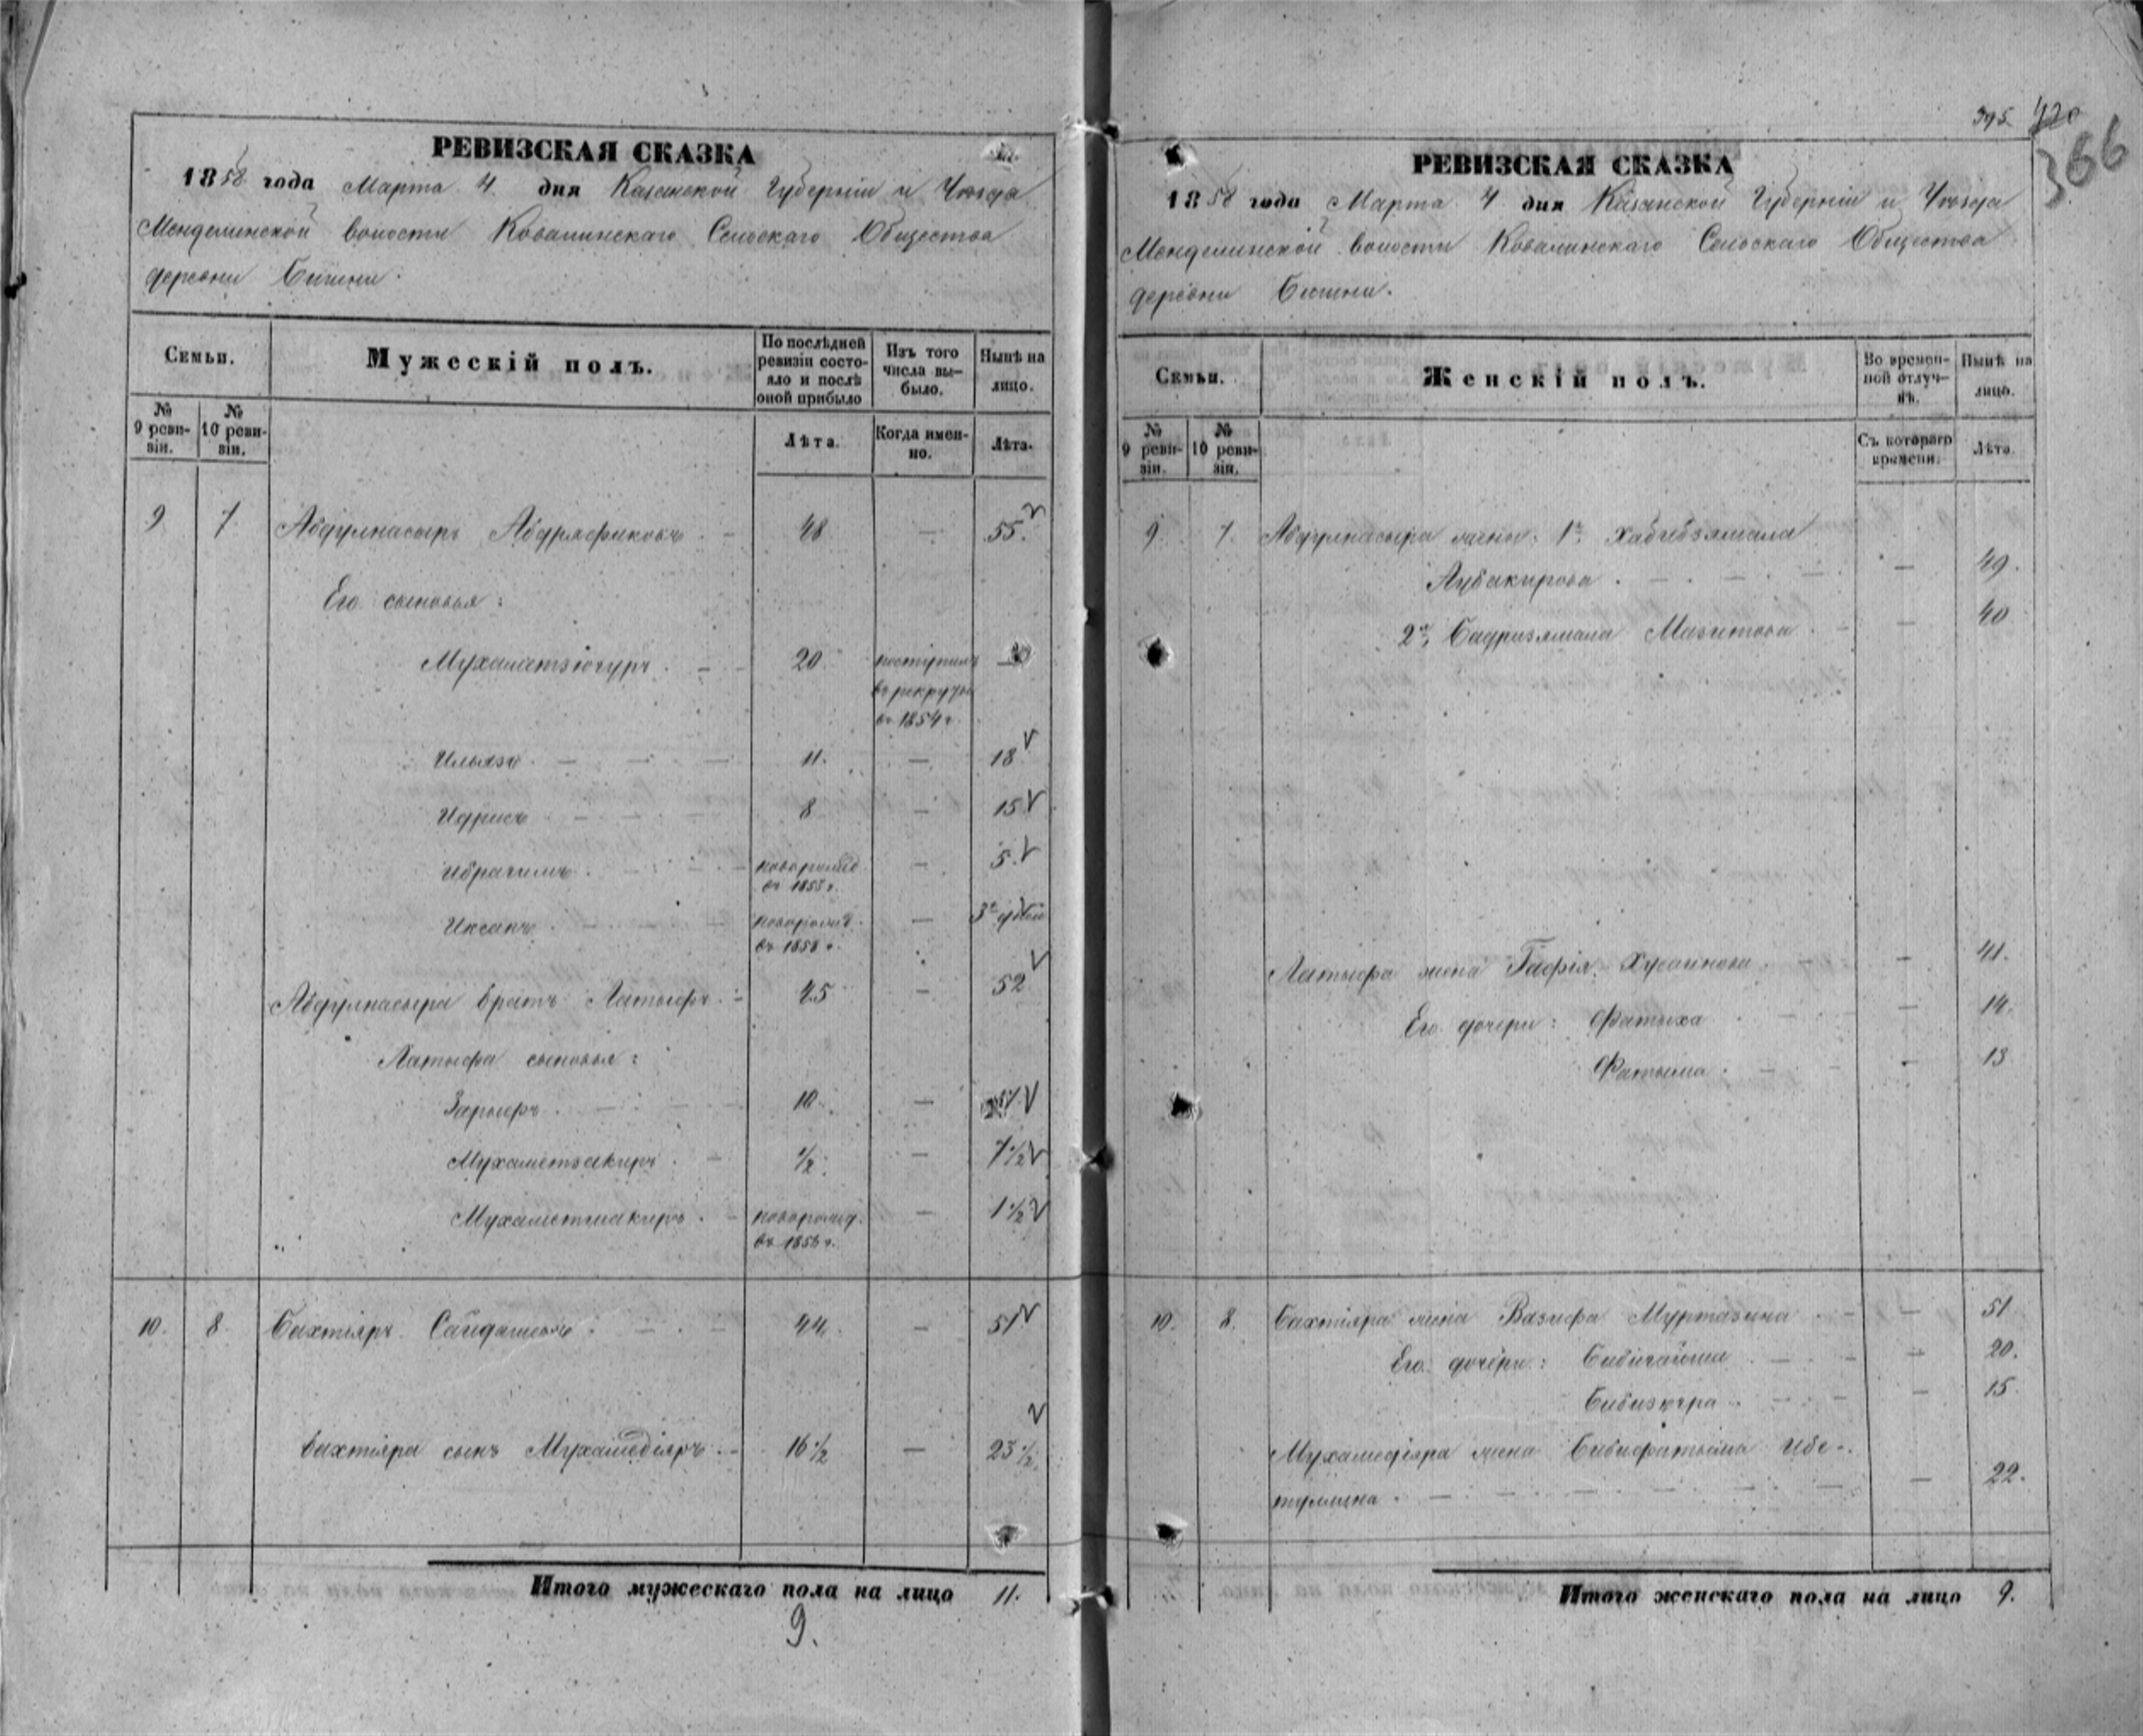 395. 420
366
РЕВИЗСКАЯ СКАЗКА
1858 года Марта 4. дня Казанской Губерніи и Уѣзда
Менделинской волости Ковалинскаго Сельскаго Общества
деревни
Семьи.
Мужескій полъ.
По послѣдней ревизіи состояло и послѣ оной прибыло
Изъ того числа выбыло.
Нынѣ на лицо.
№ 9 ревизіи.
№ 10 ревизіи.
Лѣта.
Когда именно.
Лѣта.
9 7 Абдулнасыръ Абдрафиковъ. - 48 — 55.
Его сыновья:
20. поступилъ —
въ рекруты
въ 1854 г.
Ильязъ. — — — 11. — 18
Идрисъ — — — 8 — 15
Ибрагимъ. — — новорожд. — 5.
въ 1853 г.
Иксанъ. — — новорожд. — 3
въ 1858 г.
Абдулнасыра братъ Латыфъ. - 45 — 52
Латыфа сыновья:
Зарыфъ. — — 10. — 17
Мухаметзакиръ. — 1/2. — 7 1/2
Мухаметшакиръ. - новорожд. — 1 1/2
въ 1856 г.
10. 8. Бахтіяръ Сайдашевъ. — — 44. — 51
Бахтіяра сынъ Мухамедіяръ. - 16 1/2 — 23 1/2.
Итого мужескаго пола на лицо 11.
9.
РЕВИЗСКАЯ СКАЗКА
1858 года Марта 4 дня Казанской Губерніи и Уѣзда
Менделинской волости Ковалинскаго Сельскаго Общества
деревни
Семьи.
Женскій полъ.
Во временной отлучкѣ.
Нынѣ на лицо.
№ 9 ревизіи.
№ 10 ревизіи.
Съ котораго времени.
Лѣта
9. 7. Абдулнасыра жены: 1я Хабибзямала
Аубакирова. — — — 49.
2я, Бадризямала Мазитова. — 40
Латыфа жена Гафія Хусаинова. — — 41.
Его дочери: Фатыха — — 14.
Фатыма. — — 13
10. 8. Бахтіяра жена Вазифа Муртазина. — — 51
Его дочери: Бибигайша — — 20.
Бибизюгра. — — 15
Мухамедіяра жена Бибифатыма Ибе-
тулина. — — — — 22.
Итого женскаго пола на лицо 9.